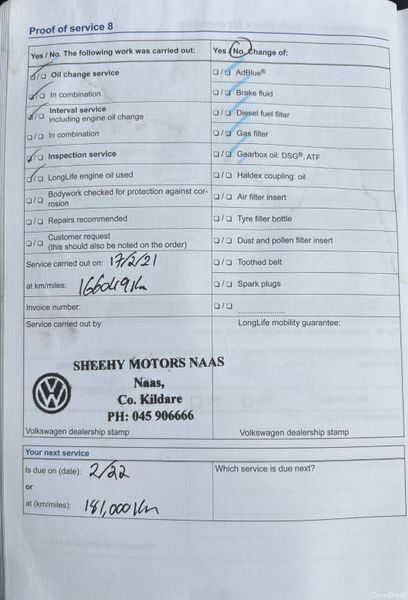 Proof of service 8
Yes / No. The following work was carried out:
☑/☐ Oil change service
☑/☐ In combination
☑/☐ Interval service
including engine oil change
☐/☐ In combination
☑/☐ Inspection service
☑/☐ LongLife engine oil used
☐/☐ Bodywork checked for protection against cor-
rosion
☐/☐ Repairs recommended
☐/☐ Customer request
(this should also be noted on the order)
Service carried out on: 17/2/21
at km/miles: 166049 Km
Invoice number:
Service carried out by:
Yes / No, Change of:
☐/☐ AdBlue®
☐/☐ Brake fluid
☐/☐ Diesel fuel filter
☐/☐ Gas filter
☐/☐ Gearbox oil: DSG®, ATF
☐/☐ Haldex coupling: oil
☐/☐ Air filter insert
☐/☐ Tyre filler bottle
☐/☐ Dust and pollen filter insert
☐/☐ Toothed belt
☐/☐ Spark plugs
☐/☐ .....................
LongLife mobility guarantee:
SHEEHY MOTORS NAAS
Naas,
Co. Kildare
PH: 045 906666
Volkswagen dealership stamp
Volkswagen dealership stamp
Your next service
Is due on (date): 2/22
or
at (km/miles): 181,000 Km
Which service is due next?
DoneDeal